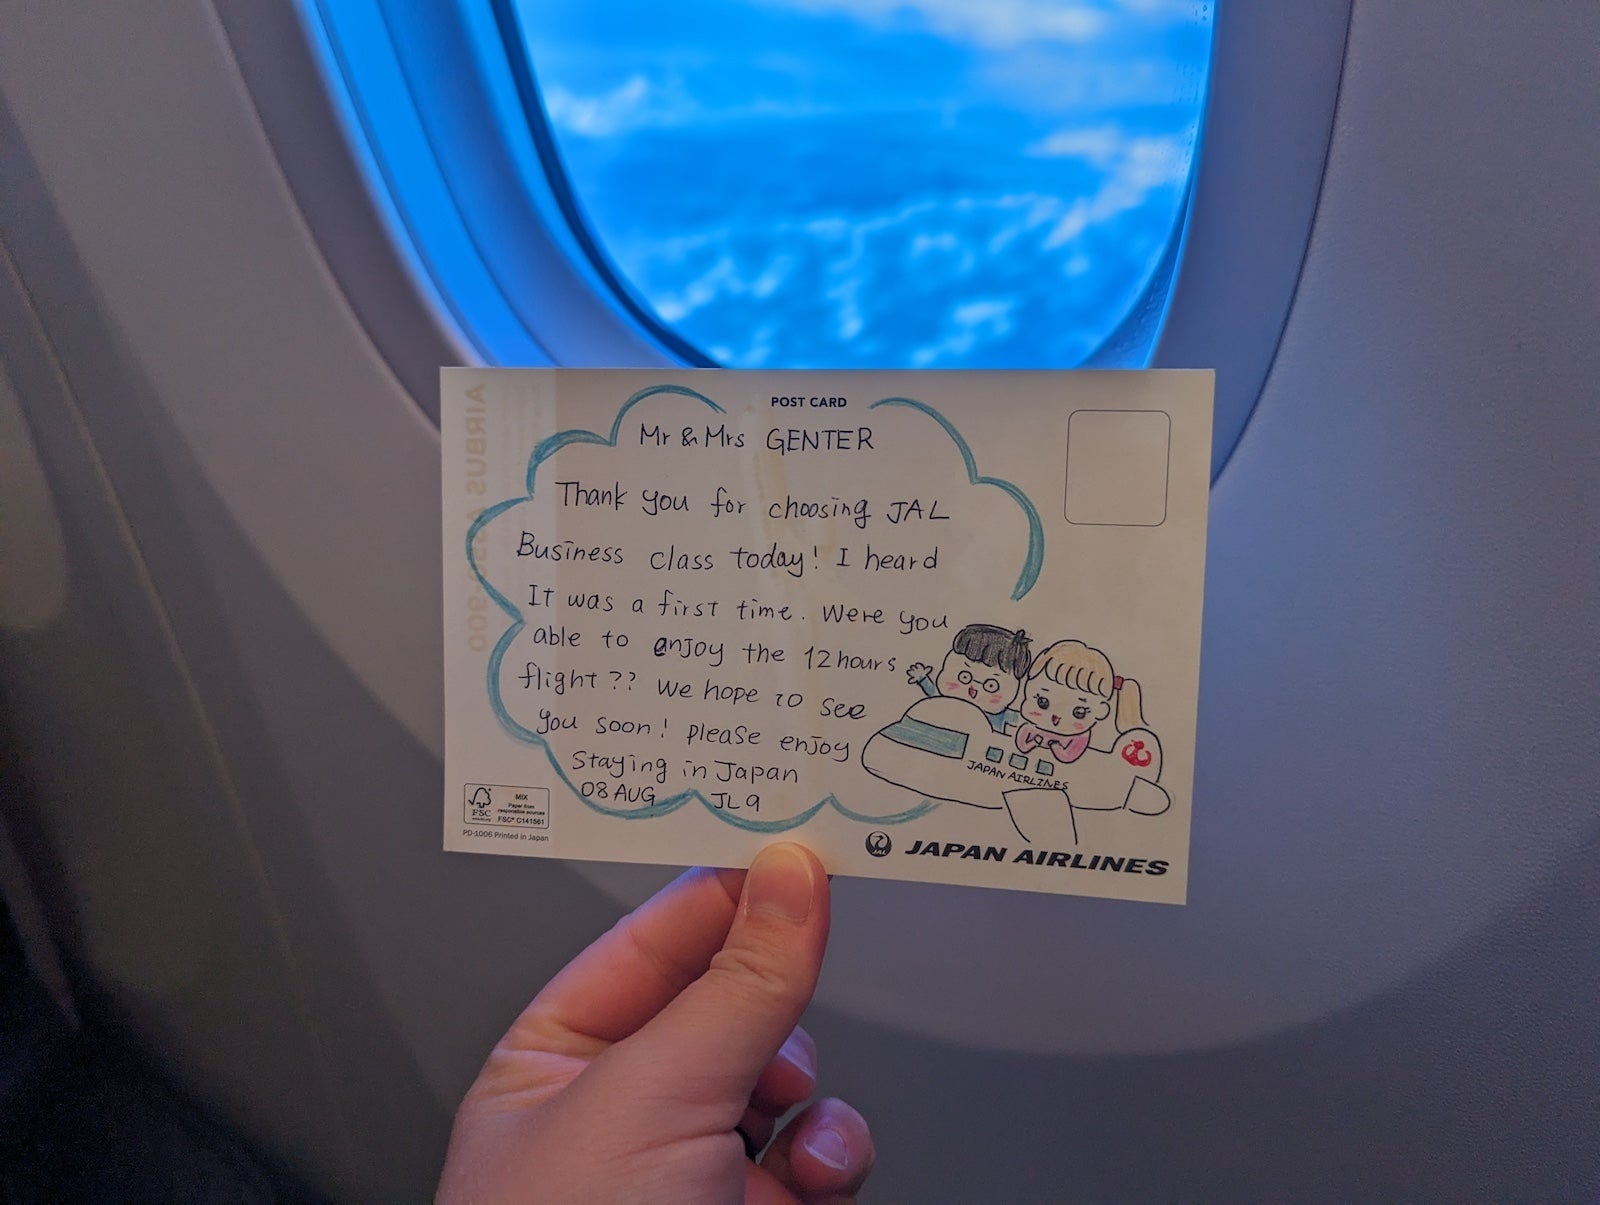 POST CARD
Mr & Mrs GENTER
Thank you for choosing JAL
Business class today! I heard
It was a first time. Were you
able to enjoy the 12hours
flight?? We hope to see
you soon! please enjoy
Staying in Japan
08 AUG JL9
JAPAN AIRLINES
FSC
MIX
Paper from
responsible sources
FSC® C141561
PD-1006 Printed in Japan
JAL
JAPAN AIRLINES
AIRBUS